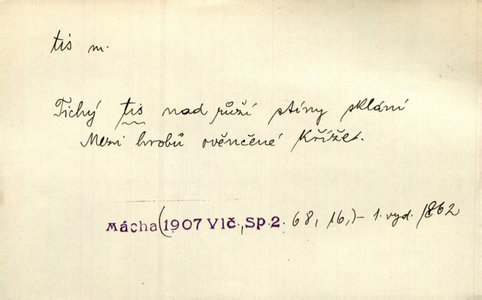 tis m.
Tichý tis nad růží stíny sklání
Mezi hrobů ověnčené křížet.
Mácha (1907 Vlč, Sp. 2. 68, 16,) - 1. vyd. 1862